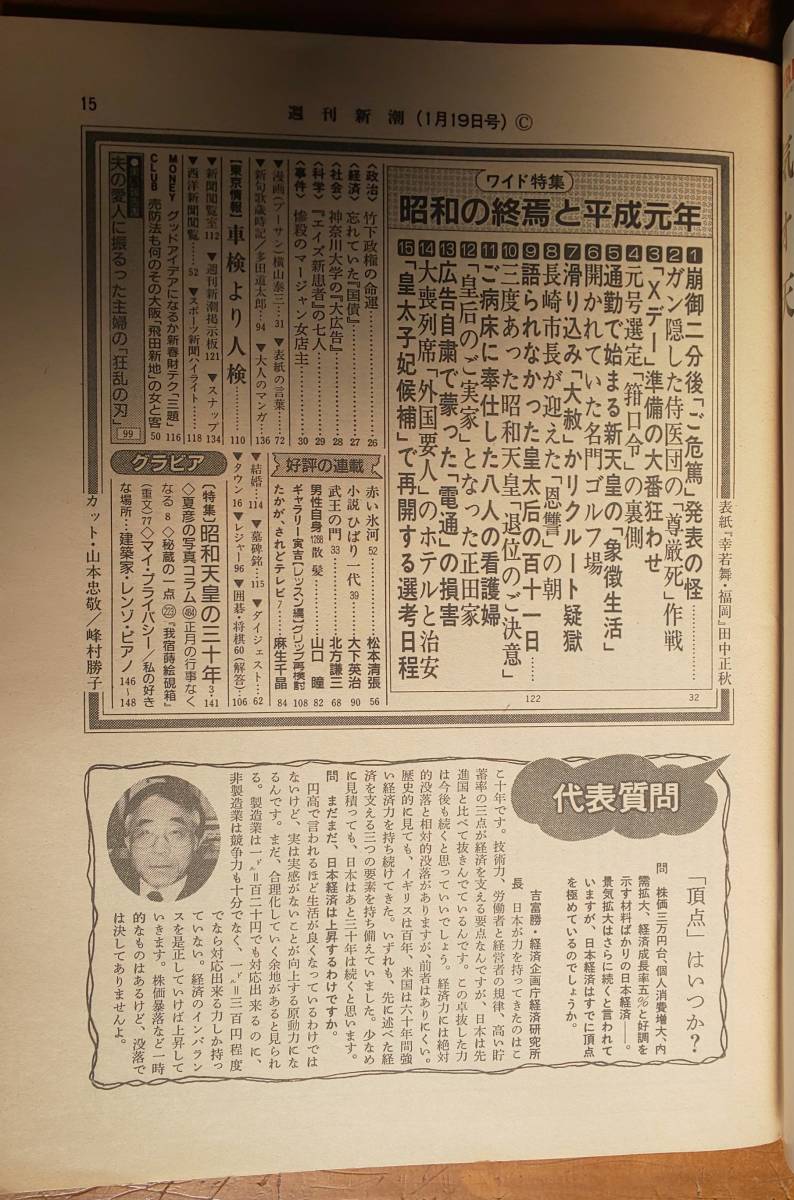 15
週刊新潮(1月19日号)©
表紙『幸若舞・福岡』田中正秋
ワイド特集
昭和の終焉と平成元年
1 崩御二分後「ご危篤」発表の怪
2 ガン隠した侍医団の「尊厳死」作戦
3 「Xデー」準備の大番狂わせ
4 元号選定「箝口令」の裏側
5 通勤で始まる新天皇の「象徴生活」
6 開かれていた名門ゴルフ場
7 滑り込み「大赦」かリクルート疑獄
8 長崎市長が迎えた「恩讐」の朝
9 語られなかった皇太后の百十一日……
10 三度あった昭和天皇「退位のご決意」
11 ご病床に奉仕した八人の看護婦
12 「皇后のご実家」となった正田家
13 広告自粛で蒙った「電通」の損害
14 大喪列席「外国要人」のホテルと治安
15 「皇太子妃候補」で再開する選考日程
32
122
〈政治〉竹下政権の命運………26
〈経済〉忘れていた『国債』………27
〈社会〉神奈川大学の『大広告』………28
〈科学〉『エイズ新患者』の七人………29
〈事件〉惨殺のマージャン女店主………30
▼漫画(プーサン)横山泰三…31 ▼表紙の言葉………72
▼新句歌歳時記/多田道太郎…94 ▼大人のマンガ…136
【東京情報】車検より人検………110
▼新聞閲覧室112 ▼週刊新潮掲示板121 ▼スナップ134
▼西洋新聞閲覧……52 ▼スポーツ新聞ハイライト…118
MONEY グッドアイデアになるか新春財テク「三題」116
CLUB 売防法も何のその大阪「飛田新地」の女と客50
夫の愛人に振るった主婦の「狂乱の刃」99
好評の連載
赤い氷河52 ………松本清張56
小説 ひばり一代39………大下英治90
武王の門33………北方謙三68
男性自身1288散髪………山口瞳82
ギャラリー寅吉【レッスン編】グリップ再検討108
たかが、されどテレビ7…麻生千晶84
▼結婚…114 ▼墓碑銘…115 ▼ダイジェスト…62
▼タウン16 ▼レジャー…96 ▼囲碁・将棋60(解答)…106
グラビア
【特集】昭和天皇の三十年3・141
◇夏彦の写真コラム484正月の行事なく
なる8◇秘蔵の一点223『我宿蒔絵硯箱』
(重文)77◇マイ・プライバシー/私の好き
な場所…建築家・レンゾ・ピアノ146~148
カット・山本忠敬/峰村勝子
代表質問
「頂点」はいつか?
問 株価三万円台、個人消費増大、内
需拡大、経済成長率五%と好調を
示す材料ばかりの日本経済――。
景気拡大はさらに続くと言われて
いますが、日本経済はすでに頂点
を極めているのでしょうか。
吉冨勝・経済企画庁経済研究所
長 日本が力を持ってきたのはこ
こ十年です。技術力、労働者と経営者の規律、高い貯
蓄率の三点が経済を支える要点なんですが、日本は先
進国と比べて抜きんでているんです。この卓抜した力
は今後も続くと思っていいでしょう。経済力には絶対
的没落と相対的没落がありますが、前者はありにくい。
歴史的に見ても、イギリスは百年、米国は六十年間強
い経済力を持ち続けてきた。いずれも、先に述べた経
済を支える三つの要素を持ち備えていました。少なめ
に見積っても、日本はあと三十年は続くと思います。
問 まだまだ、日本経済は上昇するわけですか。
円高で言われるほど生活が良くなっているわけでは
ないけど、実は実感がないことが向上する原動力にな
るんです。まだ、合理化していく余地があると見られ
る。製造業は一㌦=百二十円でも対応出来るのに、
非製造業は競争力も十分でなく、一㌦=三百円程度
でなら対応出来る力しか持っ
ていない。経済のインバラン
スを是正していけば上昇して
いきます。株価暴落など一時
的なものはあるけど、没落で
は決してありませんよ。